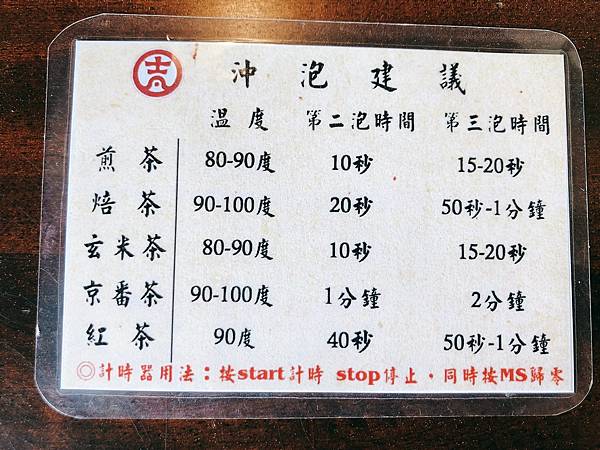 沖泡建議
溫度 第二泡時間 第三泡時間
煎茶 80-90度 10秒 15-20秒
焙茶 90-100度 20秒 50秒-1分鐘
玄米茶 80-90度 10秒 15-20秒
京番茶 90-100度 1分鐘 2分鐘
紅茶 90度 40秒 50秒-1分鐘
◎計時器用法：按start計時 stop停止．同時按MS歸零